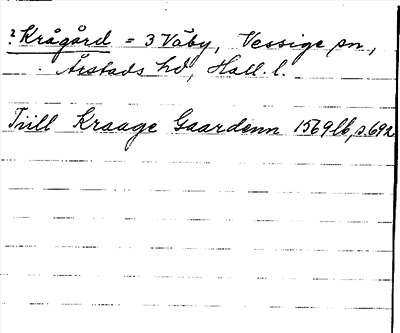 ? Krågård = 3 Väby, Vessige sn,
Årstads hd, Hall. l.
Trill Kraage Gaardenn 1569 lb, s. 692